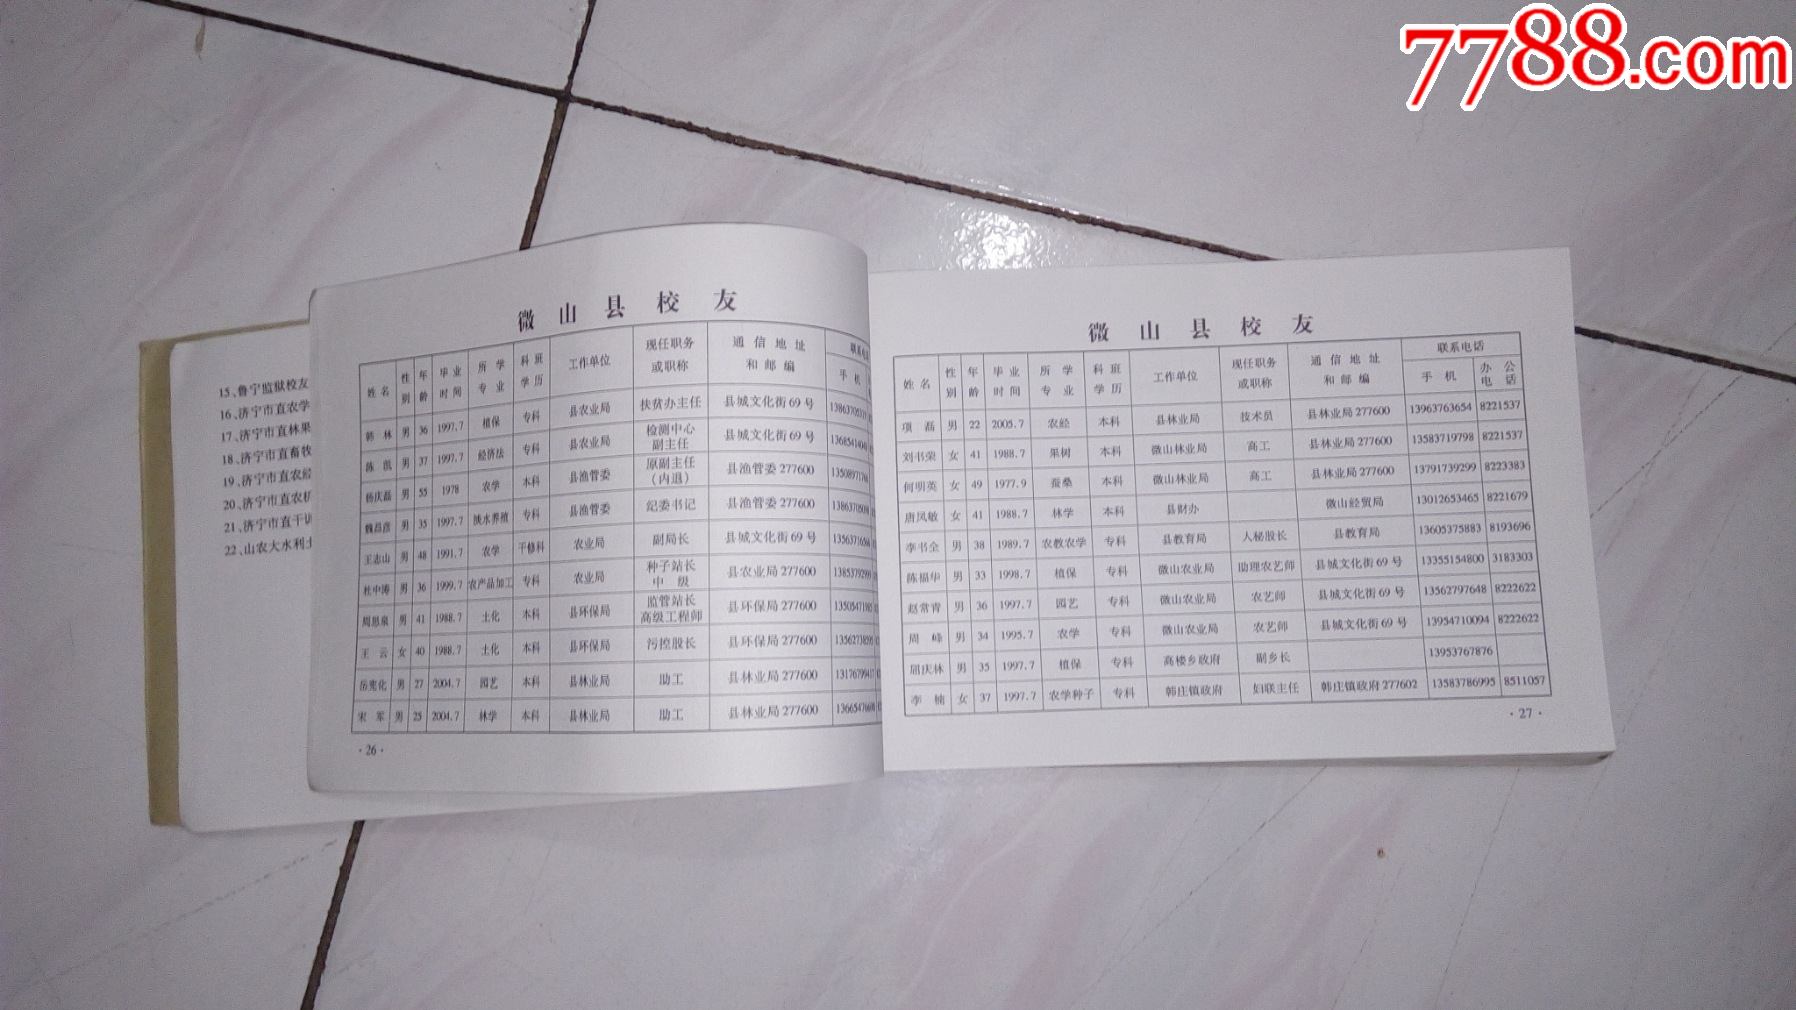 7788.com
15、鲁宁监狱校友
16、济宁市直农学
17、济宁市直林果
18、济宁市直畜牧
19、济宁市直农经
20、济宁市直农机
21、济宁市直干训
22、山农大水利土
微山县校友
姓名 性别 年龄 毕业时间 所学专业 科班学历 工作单位 现任职务或职称 通信地址和邮编 联系电话
手机
韩林 男 36 1997.7 植保 专科 县农业局 扶贫办主任 县城文化街69号
陈凯 男 37 1997.7 经济法 专科 县农业局 检测中心副主任 县城文化街69号
杨庆磊 男 55 1978 农学 本科 县渔管委 原副主任(内退) 县渔管委277600
魏昌彦 男 35 1997.7 淡水养殖 专科 县渔管委 纪委书记 县渔管委277600
王志山 男 48 1991.7 农学 干修科 农业局 副局长 县城文化街69号
杜中涛 男 36 1999.7 农产品加工 专科 农业局 种子站长中级 县农业局277600
周思泉 男 41 1988.7 土化 本科 县环保局 监管站长高级工程师 县环保局277600
王云 女 40 1988.7 土化 本科 县环保局 污控股长 县环保局277600
岳宪化 男 27 2004.7 园艺 本科 县林业局 助工 县林业局277600
宋军 男 25 2004.7 林学 本科 县林业局 助工 县林业局277600
·26·
微山县校友
姓名 性别 年龄 毕业时间 所学专业 科班学历 工作单位 现任职务或职称 通信地址和邮编 联系电话
手机 办公电话
项磊 男 22 2005.7 农经 本科 县林业局 技术员 县林业局277600 13963763654 8221537
刘书荣 女 41 1988.7 果树 本科 微山林业局 高工 县林业局277600 13583719798 8221537
何明英 女 49 1977.9 蚕桑 本科 微山林业局 高工 县林业局277600 13791739299 8223383
唐凤敏 女 41 1988.7 林学 本科 县财办 微山经贸局 13012653465 8221679
李书全 男 38 1989.7 农教农学 专科 县教育局 人秘股长 县教育局 13605375883 8193696
陈福华 男 33 1998.7 植保 专科 微山农业局 助理农艺师 县城文化街69号 13355154800 3183303
赵常青 男 36 1997.7 园艺 专科 微山农业局 农艺师 县城文化街69号 13562797648 8222622
周峰 男 34 1995.7 农学 专科 微山农业局 农艺师 县城文化街69号 13954710094 8222622
屈庆林 男 35 1997.7 植保 专科 高楼乡政府 副乡长 13953767876
李楠 女 37 1997.7 农学种子 专科 韩庄镇政府 妇联主任 韩庄镇政府277602 13583786995 8511057
·27·